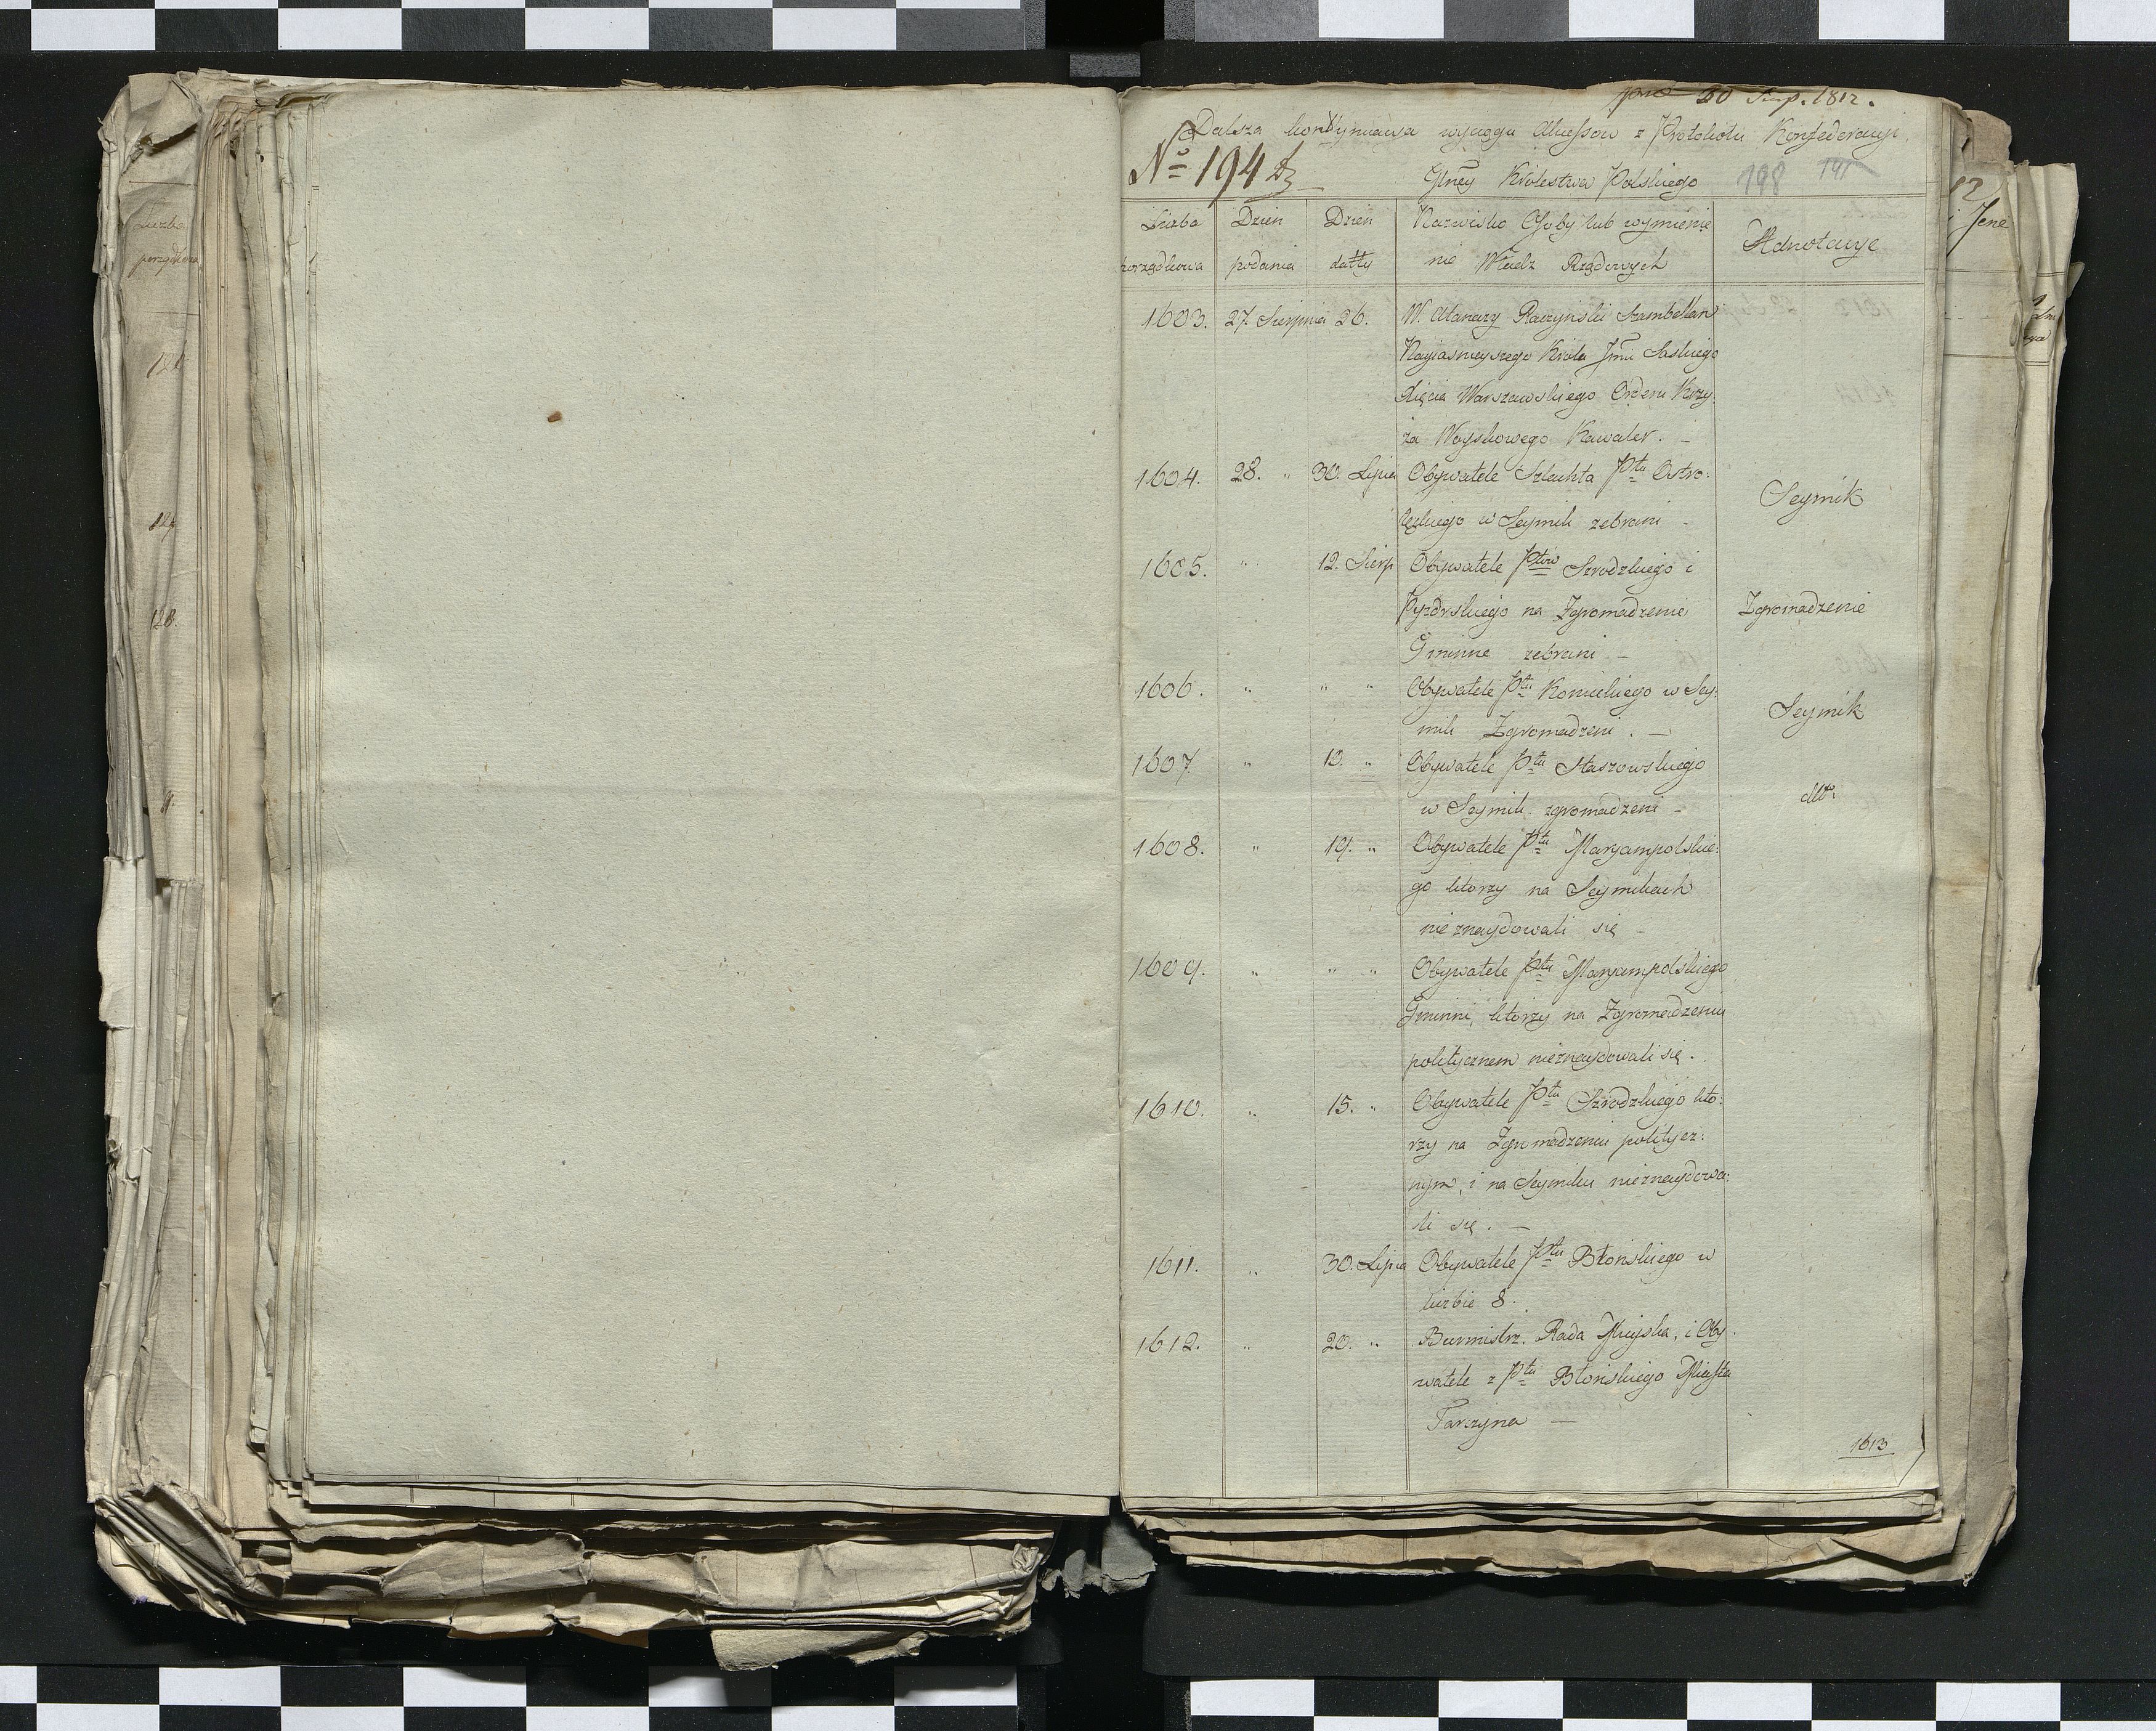 30 Sierp. 1812.
Dalsza kontynuacya wyciągu Akcessow z Protokołu Konfederacyi
No 194
Glney Krolestwa Polskiego 198 191
Liczba Dzien Dzien Nazwisko Osoby lub wymienie
porządkowa podania datty nie Władz Rządowych Adnotacye
1603. 27. Sierpnia 26. W. Atanazy Raczynski Szambellan
Nayiasnieyszego Krola Jmci Saskiego
Xięcia Warszawskiego Orderu Krzy:
ża Woyskowego Kawaler. –
1604. 28. " 30. Lipca Obywatele Szlachta Ptu Ostro:
łęckiego w Seymik zebrani – Seymik
1605. " 12. Sierp Obywatele Ptow Szrodzkiego i
Pyzdrskiego na Zgromadzenie Zgromadzenie
Gminne zebrani –
1606. " " " Obywatele Ptu Konieckiego w Sey:
mik Zgromadzeni. – Seymik
1607 " 12. " Obywatele Ptu Staszowskiego
w Seymik zgromadzeni – ditto
1608. " 19. " Obywatele Ptu Maryampolskie:
go ktorzy na Seymikach
nieznaydowali się –
1609. " " " Obywatele Ptu Maryampolskiego
Gminni, ktorzy na Zgromadzeniu
politycznem nieznaydowali się.
1610. " 15. " Obywatele Ptu Szrodzkiego kto:
rzy na Zgromadzeniu politycz:
nym, i na Seymiku nieznaydowa:
li się. –
1611. " 30. Lipca Obywatele Ptu Błonskiego w
liczbie 8.
1612. " 20. " Burmistrz. Rada Mieyska, i Oby:
watele z Ptu Błonskiego Miasta
Tarczyna –
1613